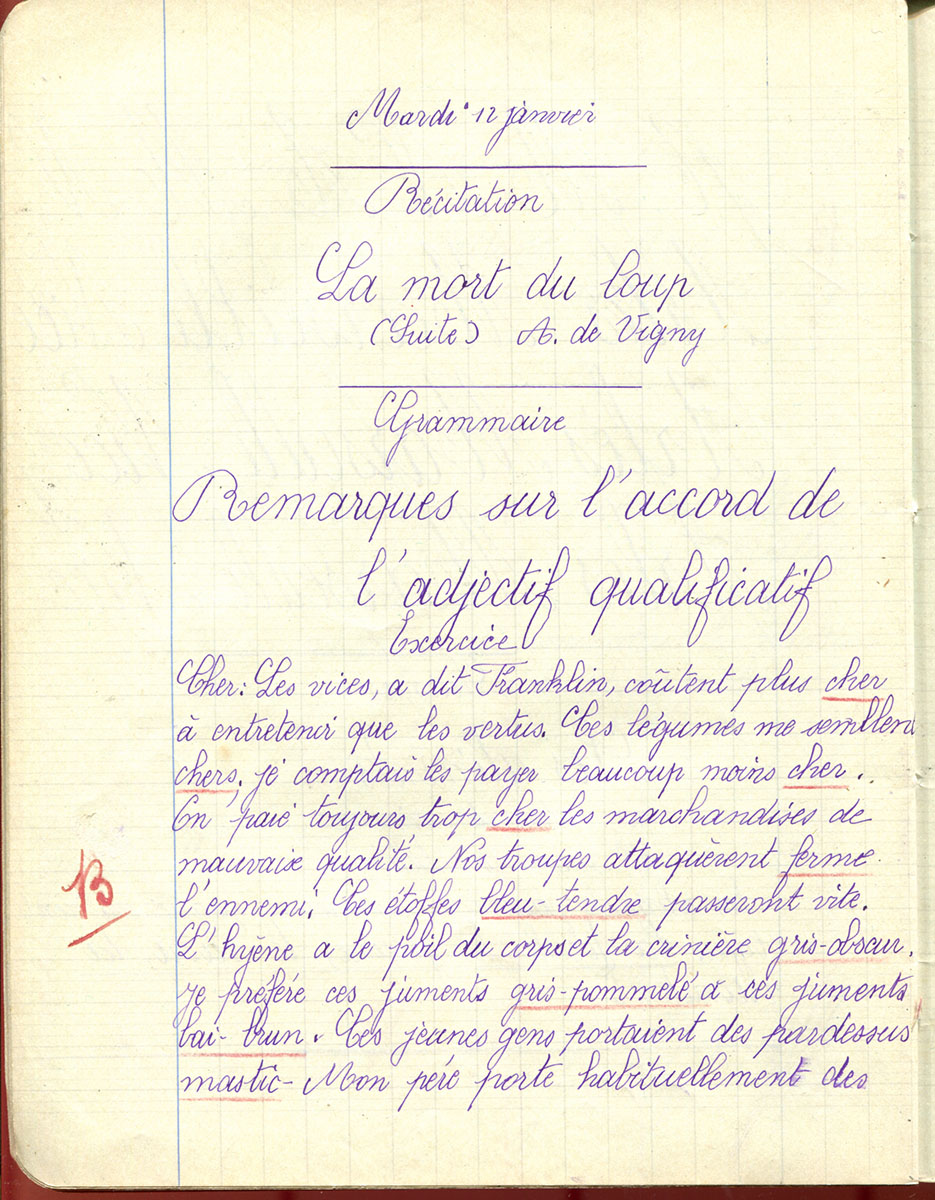 Mardi 12 janvier
Récitation
La mort du loup
(Suite) A. de Vigny
Grammaire
Remarques sur l'accord de
l'adjectif qualificatif
Exercice
Cher: Les vices, a dit Franklin, coûtent plus cher
à entretenir que les vertus. Ces légumes me semblen
chers, je comptais les payer beaucoup moins cher.
On paie toujours trop cher les marchandises de
mauvaise qualité. Nos troupes attaquèrent ferme
l'ennemi. Ces étoffes bleu-tendre passeront vite.
L'hyène a le poil du corps et la crinière gris-obscur.
Je préfére ces juments gris-pommelé à ces juments
bai-brun. Ces jeunes gens portaient des pardessus
mastic- Mon père porte habituellement des
B